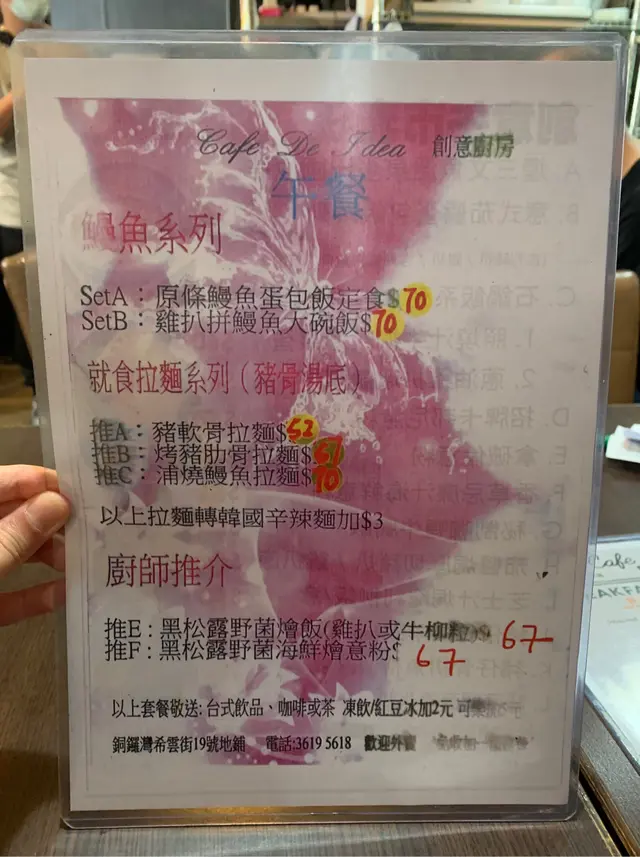 Cafe De Idea 創意廚房
午餐
鰻魚系列
SetA：原條鰻魚蛋包飯定食$70
SetB：雞扒拼鰻魚大碗飯$70
就食拉麵系列（豬骨湯底）
推A：豬軟骨拉麵$
推B：烤豬肋骨拉麵$
推C：浦燒鰻魚拉麵$70
以上拉麵轉韓國辛辣麵加$3
廚師推介
推E：黑松露野菌燴飯(雞扒或牛柳粒)$ 67
推F：黑松露野菌海鮮燴意粉$ 67
以上套餐敬送: 台式飲品、咖啡或茶 凍飲/紅豆冰加2元
銅鑼灣希雲街19號地鋪 電話:3619 5618 歡迎外賣